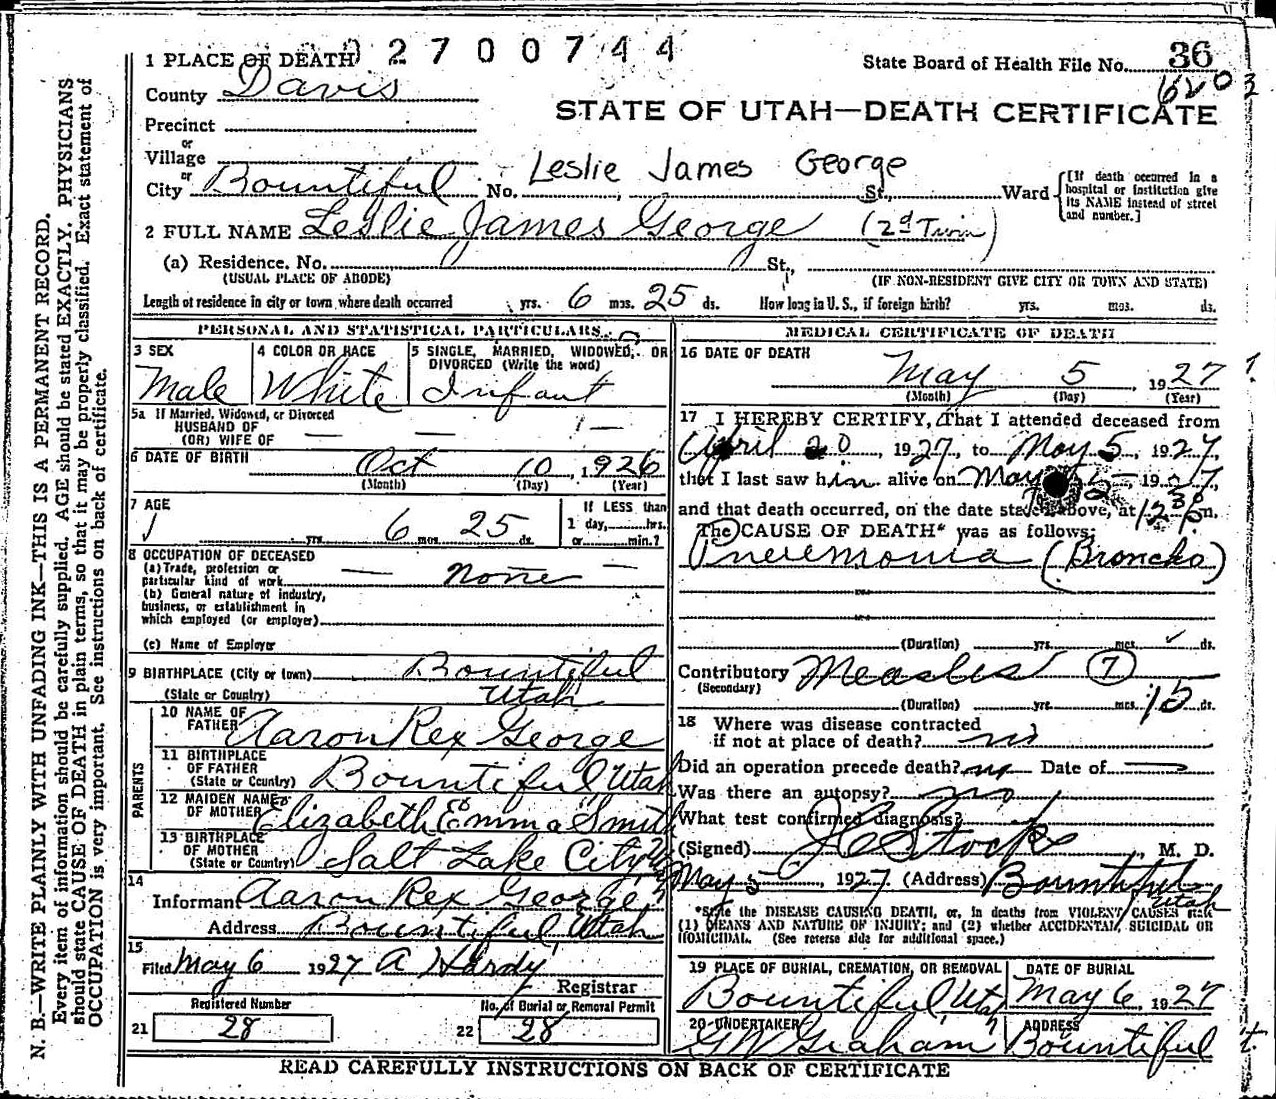 02700744
1 PLACE OF DEATH
State Board of Health File No. 36
6203
County Davis
STATE OF UTAH—DEATH CERTIFICATE
Precinct
or
Village
Leslie James George
or
City Bountiful No. St., Ward
[If death occurred in a hospital or institution give its NAME instead of street and number.]
2 FULL NAME Leslie James George (2d Twin)
(a) Residence. No. St.,
(USUAL PLACE OF ABODE) (IF NON-RESIDENT GIVE CITY OR TOWN AND STATE)
Length of residence in city or town where death occurred yrs. 6 mos. 25 ds. How long in U. S., if foreign birth? yrs. mos. ds.
PERSONAL AND STATISTICAL PARTICULARS
3 SEX Male
4 COLOR OR RACE White
5 SINGLE, MARRIED, WIDOWED, OR DIVORCED (Write the word) Infant
5a If Married, Widowed, or Divorced
HUSBAND OF
(OR) WIFE OF — — —
6 DATE OF BIRTH Oct 10, 1926
(Month) (Day) (Year)
7 AGE yrs. 6 mos. 25 ds.
If LESS than 1 day, hrs. or min.?
8 OCCUPATION OF DECEASED
(a) Trade, profession or particular kind of work — none —
(b) General nature of industry, business, or establishment in which employed (or employer)
(c) Name of Employer
9 BIRTHPLACE (City or town) Bountiful
(State or Country) Utah
PARENTS
10 NAME OF FATHER Aaron Rex George
11 BIRTHPLACE OF FATHER (State or Country) Bountiful, Utah
12 MAIDEN NAME OF MOTHER Elizabeth Emma Smith
13 BIRTHPLACE OF MOTHER (State or Country) Salt Lake City
14
Informant Aaron Rex George
Address Bountiful, Utah
15
Filed May 6 1927 A Hardy
Registrar
Registered Number
21 28
No. of Burial or Removal Permit
22 28
MEDICAL CERTIFICATE OF DEATH
16 DATE OF DEATH
May 5, 1927
(Month) (Day) (Year)
17 I HEREBY CERTIFY, That I attended deceased from
April 20, 1927, to May 5, 1927,
that I last saw him alive on May 5, 1927,
and that death occurred, on the date stated above, at 12 30 p m.
The CAUSE OF DEATH* was as follows:
Pneumonia (Broncho)
(Duration) yrs. mos. ds.
Contributory Measles 7
(Secondary)
(Duration) yrs. mos. 15 ds.
18 Where was disease contracted
if not at place of death?
Did an operation precede death? no Date of —
Was there an autopsy? no
What test confirmed diagnosis?
(Signed) J C Stocks, M. D.
May 5, 1927 (Address) Bountiful Utah
*State the DISEASE CAUSING DEATH, or, in deaths from VIOLENT CAUSES state
(1) MEANS AND NATURE OF INJURY; and (2) whether ACCIDENTAL, SUICIDAL OR
HOMICIDAL. (See reverse side for additional space.)
19 PLACE OF BURIAL, CREMATION, OR REMOVAL
Bountiful, Utah
DATE OF BURIAL
May 6, 1927
20 UNDERTAKER
G W Graham
ADDRESS
Bountiful
READ CAREFULLY INSTRUCTIONS ON BACK OF CERTIFICATE
N. B.—WRITE PLAINLY WITH UNFADING INK—THIS IS A PERMANENT RECORD.
Every item of information should be carefully supplied. AGE should be stated EXACTLY. PHYSICIANS
should state CAUSE OF DEATH in plain terms, so that it may be properly classified. Exact statement of
OCCUPATION is very important. See instructions on back of certificate.